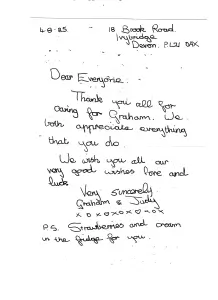 4-8-85. 18 Brook Road.
Ivybridge
Devon. PL21 0AX
Dear Everyone.
Thank you all for
caring for Graham. We
both appreciate everything
that you do.
We wish you all our
very good wishes love and
luck
Very Sincerely
Graham & Judy
x o x o x o x o x o x
P.S. Strawberries and cream
in the fridge for you.